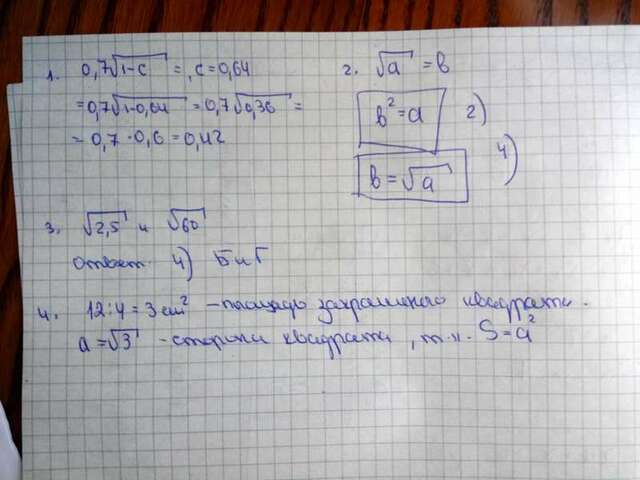 1. 0,7√1-c =, c=0,64
=0,7√1-0,64 = 0,7√0,36 =
= 0,7 · 0,6 = 0,42
2. √a = b
b²=a 2)
b=√a 4)
3. √2,5 и √60
ответ 4) Б и Г
4. 12:4=3 см² - площадь закрашеного квадрата.
a=√3 - сторона квадрата, т.к. S=a²